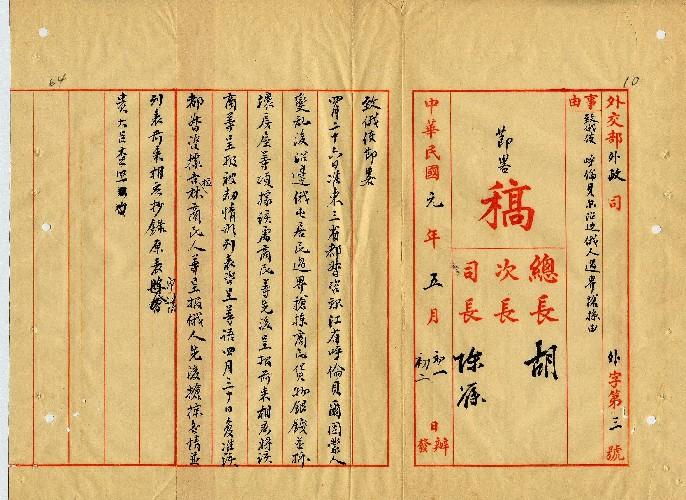 10
外交部外政司 外字第三號
事由
致俄使 呼倫貝尔沿边俄人過界搶掠由
節畧
稿
總長 胡
次長
司長 陳籙
中華民國元年五月 初一日辦
初二 發
64
致俄使節畧
四月二十六日准東三省都督咨称江省呼倫貝爾因蒙人
變亂後沿邊俄屯居民過界搶掠商民貨物銀錢並拆
壞房屋等項據該處商民等先後呈报前来相應将該
商等呈报被刼情形列表咨呈等語四月三十日復准該
都督咨據吉林商民人等呈报俄人先後搶掠各情並
列表前来相應抄錄原表
貴大臣查照